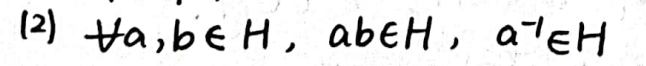 (2) ∀a,b∈H, ab∈H, a⁻¹∈H